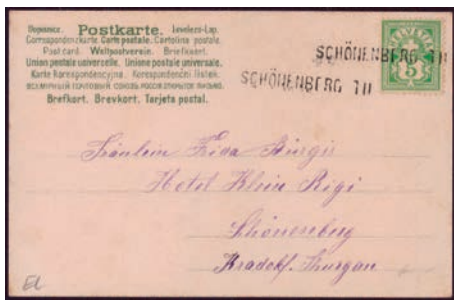 Dopisnice. Postkarte. Levelezö-Lap.
Correspondenzkarte. Carte postale. Cartolina postale.
Post card. Weltpostverein. Briefkaart.
Union postale universelle. Unione postale universale.
Karta Korespondencyjna. Korespondenční lístek.
ВСЕМИРНЫЙ ПОЧТОВЫЙ СОЮЗЪ РОССІЯ ОТКРЫТОЕ ПИСЬМО.
Brefkort. Brevkort. Tarjeta postal.
HELVETIA
5
SCHÖNENBERG TH
SCHÖNENBERG TH
Fräulein Frida Bürgis
Hotel Klein Rigi
Schönenberg
Kradolf. Thurgau
EL